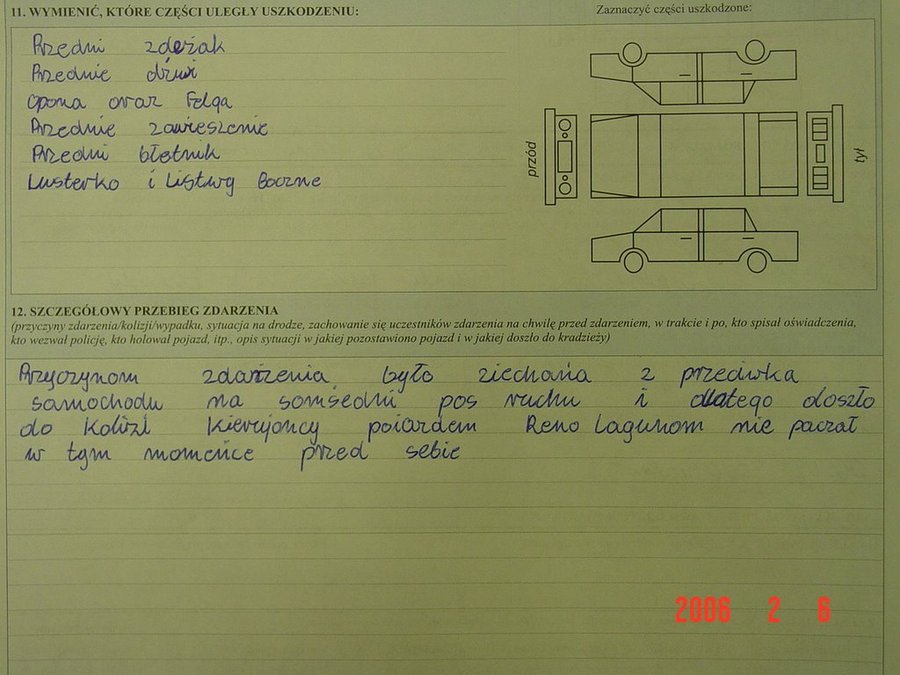 11. WYMIENIĆ, KTÓRE CZĘŚCI ULEGŁY USZKODZENIU:
Zaznaczyć części uszkodzone:
Przędni zdeżak
Przednie dźwi
opona oraz Felga
Przednie zawieszenie
Przedni błotnik
Lusterko i Listwy Boczne
przód
tył
12. SZCZEGÓŁOWY PRZEBIEG ZDARZENIA
(przyczyny zdarzenia/kolizji/wypadku, sytuacja na drodze, zachowanie się uczestników zdarzenia na chwilę przed zdarzeniem, w trakcie i po, kto spisał oświadczenia,
kto wezwał policję, kto holował pojazd, itp., opis sytuacji w jakiej pozostawiono pojazd i w jakiej doszło do kradzieży)
Przyczynom zdarzenia było ziechania z przeciwka
samochodu na somsiedni pos ruchu i dlatego doszło
do Kolizi Kierujoncy poiazdem Reno Lagunom nie paczał
w tym momeńce przed sebie
2006 2 6